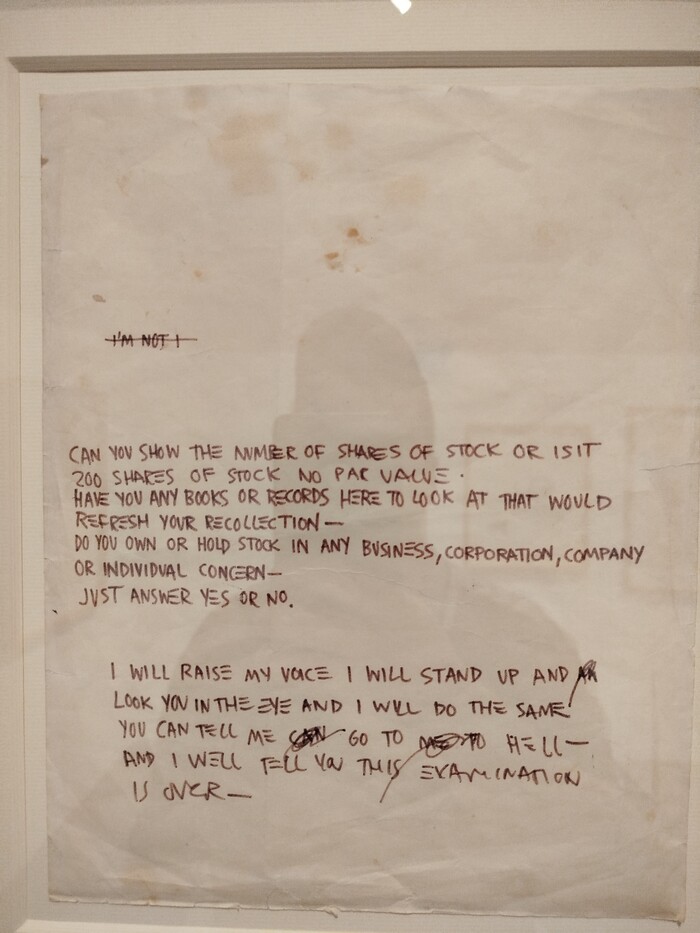 I'M NOT I
CAN YOU SHOW THE NUMBER OF SHARES OF STOCK OR IS IT
200 SHARES OF STOCK NO PAR VALUE.
HAVE YOU ANY BOOKS OR RECORDS HERE TO LOOK AT THAT WOULD
REFRESH YOUR RECOLLECTION—
DO YOU OWN OR HOLD STOCK IN ANY BUSINESS, CORPORATION, COMPANY
OR INDIVIDUAL CONCERN—
JUST ANSWER YES OR NO.
I WILL RAISE MY VOICE I WILL STAND UP AND
LOOK YOU IN THE EYE AND I WILL DO THE SAME
YOU CAN TELL ME GO TO HELL—
AND I WELL TELL YOU THIS EXAMINATION
IS OVER—